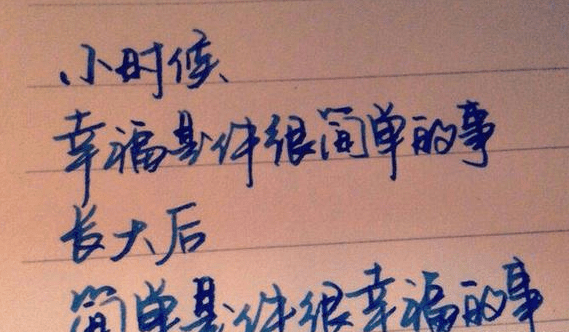 小时候、
幸福是件很简单的事
长大后
简单是件很幸福的事